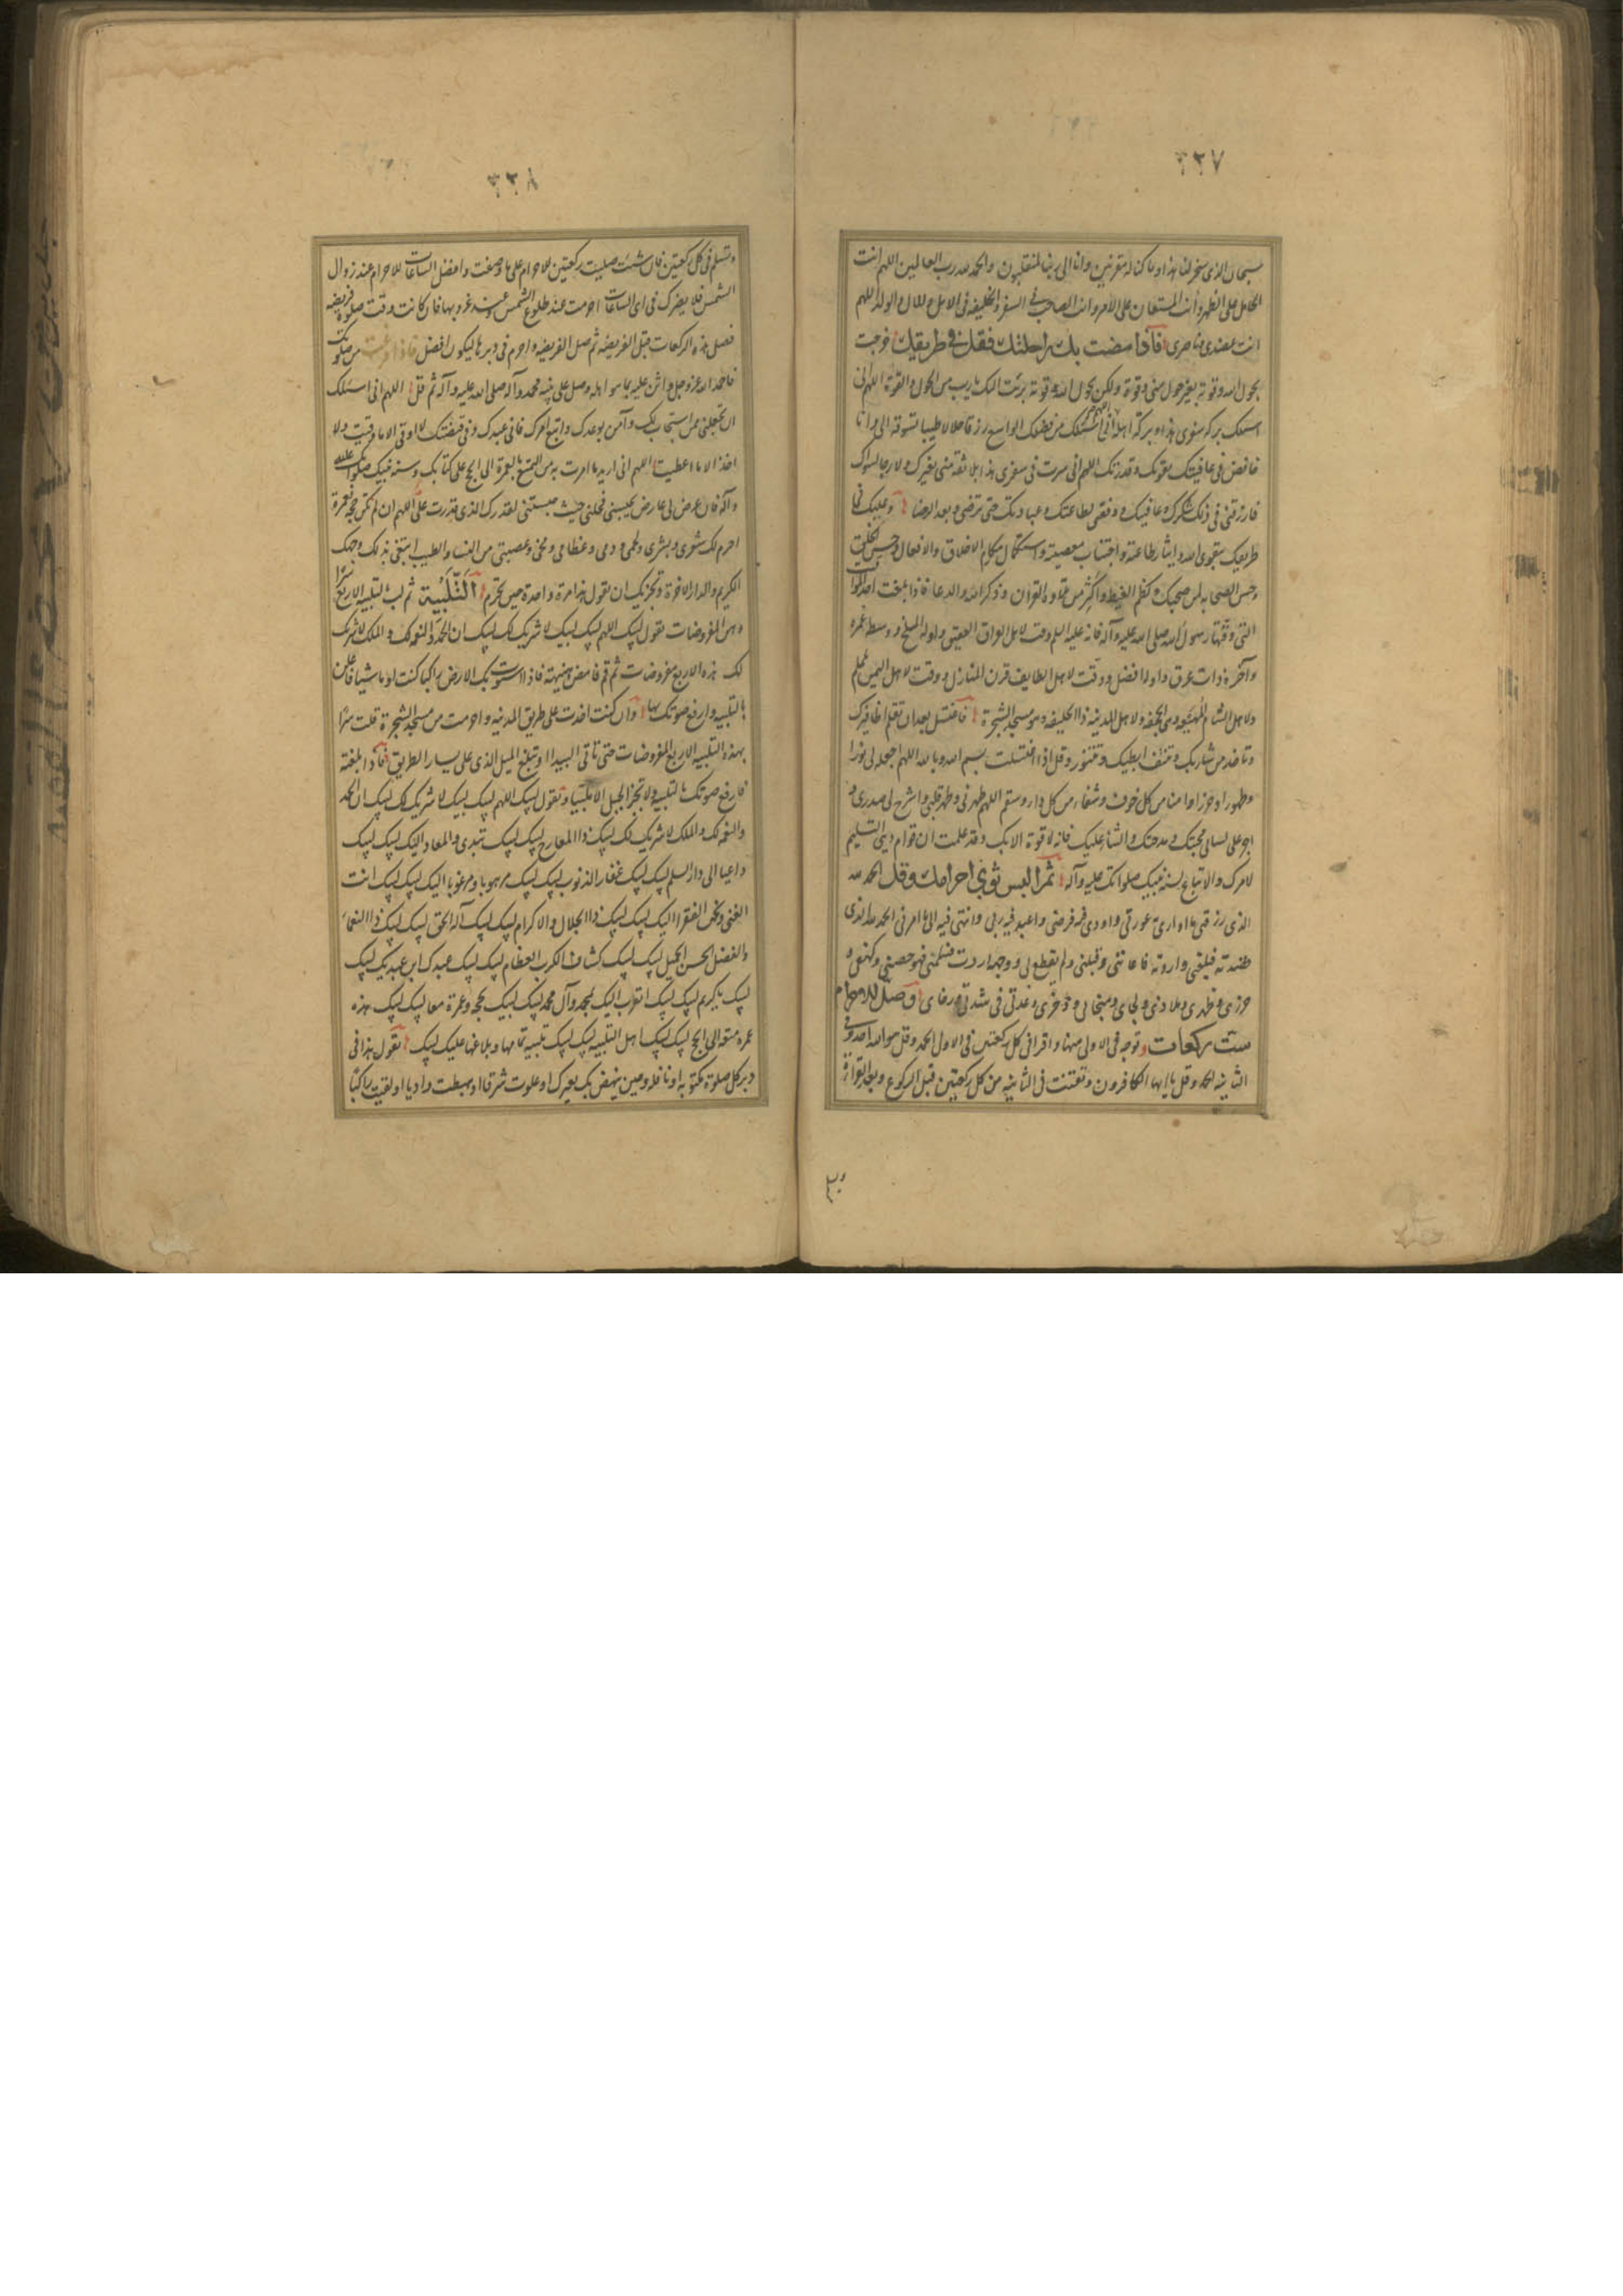 ٣٢٧
سبحان الذی سخر لنا هذا و ما کنا له مقرنین و انا الی ربنا لمنقلبون و الحمد لله رب العالمین اللهم انت
الحامل علی الظهر و انت المستعان علی الامر و انت الصاحب فی السفر و الخلیفه فی الاهل و المال و الولد اللهم
انت عضدی و ناصری فاذا مضت بک راحلتک فقل فی طریقک خرجت
بحول الله و قوته بغیر حول منی و قوة و لکن بحول الله و قوته برئت الیک یا رب من الحول و القوة اللهم انی
اسئلک برکة سفری هذا و برکة اهله اللهم انی اسئلک من فضلک الواسع رزقا حلالا طیبا تسوقه الی و انا
خافض فی عافیتک بقوتک و قدرتک اللهم انی سرت فی سفری هذا بلا ثقة منی بغیرک و لا رجا لسواک
فارزقنی فی ذلک شکرک و عافیتک و وفقنی لطاعتک و عبادتک حتی ترضی و بعد الرضا و علیک فی
طریقک بتقوی الله و ایثار طاعته و اجتناب معصیته و استکمال مکارم الاخلاق و الافعال و حسن الخلق
و حسن الصحابه لمن صحبک و کظم الغیظ و اکثر من تلاوه القران و ذکر الله و الدعا فاذا بلغت احد المواقیت
التی وقتها رسول الله صلی الله علیه و آله فانه علیه السلم وقت لاهل العراق العقیق و اوله المسلخ و وسطه غمره
و آخره ذات عرق و اوله افضل و وقت لاهل الطایف قرن المنازل و وقت لاهل الیمن یلملم
و لاهل الشام المهیعه و هی الجحفه و لاهل المدینه ذا الحلیفه و هو مسجد الشجرة فاغتسل بعد ان تقلم اظافیرک
و تاخذ من شاربک و تنتف ابطیک و تتنور و قل اذا اغتسلت بسم الله و بالله اللهم اجعله لی نورا
و طهورا و حرزا و امنا من کل خوف و شفاء من کل داء و سقم اللهم طهرنی و طهر قلبی و اشرح لی صدری و
اجر علی لسانی محبتک و مدحتک و الثناء علیک فانه لا قوة الا بک و قد علمت ان قوام دینی التسلیم
لامرک و الاتباع لسنة نبیک صلواتک علیه و آله ثم البس ثوبی احرامک و قل الحمد لله
الذی رزقنی ما اواری به عورتی و اودی فیه فرضی و اعبد فیه ربی و انتهی فیه الی ما امرنی الحمد لله الذی
قصدته فبلغنی و اردته فاعاننی و قبلنی و لم یقطع بی و وجهه اردت فسلمنی فهو حصنی و کهفی و
حرزی و ظهری و ملاذی و لجای و منجای و ذخری و عدتی فی شدتی و رخای و صل للاحرام
ست رکعات و توجه فی الاولی منها و اقرا فی کل رکعتین فی الاول الحمد و قل هو الله احد و فی
الثانیه الحمد و قل یا ایها الکافرون و تقنت فی الثانیه من کل رکعتین قبل الرکوع و بعد القراءة
٣٢٨
و تسلم فی کل رکعتین فان شئت صلیت رکعتین للاحرام علی ما وصفت و افضل الساعات للاحرام عند زوال
الشمس فلا یضرک فی ای الساعات احرمت عند طلوع الشمس و عند غروبها فان کانت وقت صلوة فریضه
فصل هذه الرکعات قبل الفریضه ثم صل الفریضه و احرم فی دبرها لیکون افضل فاذا فرغت من صلوتک
فاحمد الله عز و جل و اثن علیه بما هو اهله و صل علی نبیه محمد و آله صلی الله علیه و آله ثم قل اللهم انی اسئلک
ان تجعلنی ممن استجاب لک و آمن بوعدک و اتبع امرک فانی عبدک و فی قبضتک لا اوقی الا ما وقیت و لا
اخذ الا ما اعطیت اللهم انی ارید ما امرت به من التمتع بالعمرة الی الحج علی کتابک و سنه نبیک صلواتک علیه
و آله فان عرض لی عارض یحبسنی فحلنی حیث حبستنی لقدرک الذی قدرت علی اللهم ان لم تکن حجة فعمرة
احرم لک شعری و بشری و لحمی و دمی و عظامی و مخی و عصبتی من النسا و الطیب ابتغی بذلک وجهک
الکریم و الدار الاخرة و تجزیک ان تقول هذا مرة واحدة حین تحرم التلبیة ثم لب التلبیه الاربع سرا
و هی المفروضات تقول لبیک اللهم لبیک لبیک لا شریک لک لبیک ان الحمد و النعمه لک و الملک لا شریک
لک هذه الاربع مفروضات ثم قم فامض هنیهة فاذا استوت بک الارض راکبا کنت او ماشیا فاعلن
بالتلبیه و ارفع صوتک بها و ان کنت اخذت علی طریق المدینه و احرمت من مسجد الشجرة قلت سرا
بهذه التلبیه الاربع المفروضات حتی تاتی البیدا و تبلغ المیل الذی علی یسار الطریق فاذا بلغته
فارفع صوتک بالتلبیه و لا تجز الجبل الا ملبیا و تقول لبیک اللهم لبیک لبیک لا شریک لک لبیک ان الحمد
و النعمه لک و الملک لا شریک لک لبیک ذا المعارج لبیک لبیک تبدی و المعاد الیک لبیک لبیک
داعیا الی دار السلم لبیک لبیک غفار الذنوب لبیک لبیک مرهوبا و مرغوبا الیک لبیک لبیک انت
الغنی و نحن الفقرا الیک لبیک لبیک ذا الجلال و الاکرام لبیک لبیک آله الحق لبیک لبیک ذا النعماء
و الفضل الحسن الجمیل لبیک لبیک کشاف الکرب العظام لبیک لبیک عبدک ابن عبدیک لبیک
لبیک یا کریم لبیک لبیک اتقرب الیک بمحمد و آل محمد لبیک لبیک بحجه و عمرة معا لبیک لبیک هذه
عمره متعه الی الحج لبیک لبیک اهل التلبیه لبیک لبیک تلبیه تمامها و بلاغها علیک لبیک تقول هذا فی
دبر کل صلوة مکتوبه او نافله و حین ینهض بک بعیرک او علوت شرفا او هبطت وادیا او لقیت راکبا